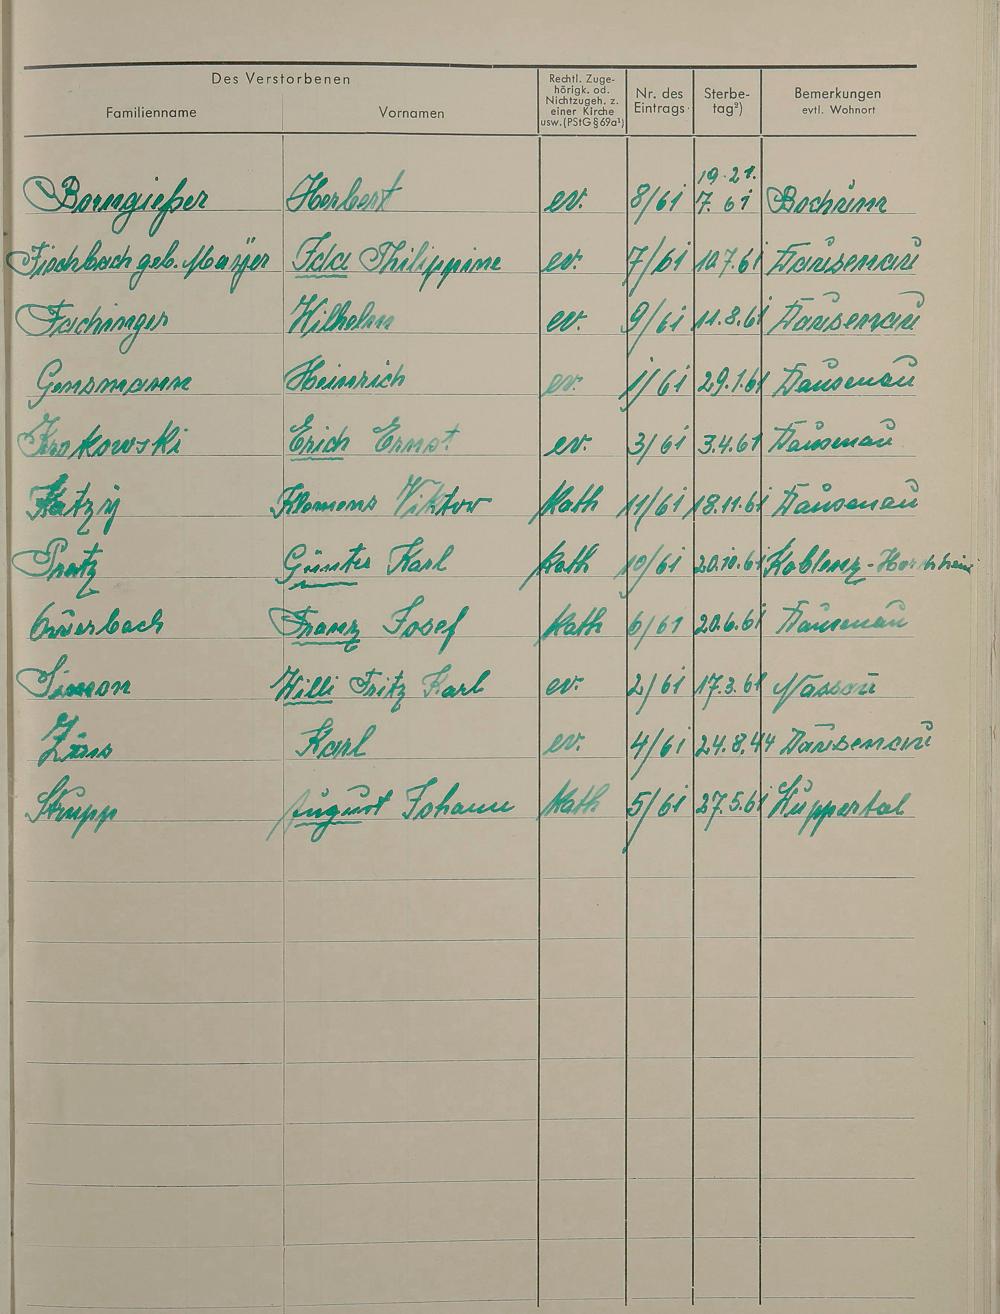 Des Verstorbenen
Familienname
Vornamen
Rechtl. Zuge-
hörigk. od.
Nichtzugeh. z.
einer Kirche
usw. (PStG § 69a¹)
Nr. des
Eintrags
Sterbe-
tag²)
Bemerkungen
evtl. Wohnort
Borngießer Herbert ev. 8/61 19.-21. 7. 61 Bochum
Fischbach geb. Mayer Ida Philippine ev. 7/61 10.7.61 Dausenau
Fachinger Wilhelm ev. 9/61 11.8.61 Dausenau
Gensmann Heinrich ev. 1/61 29.1.61 Dausenau
Krokowski Erich Ernst ev. 3/61 3.4.61 Dausenau
Katzy Klemens Viktor kath 11/61 18.11.61 Dausenau
Pratz Günter Karl kath 10/61 20.10.61 Koblenz-Horchheim
Franz Josef kath 6/61 20.6.61 Dausenau
Simon Willi Fritz Karl ev. 2/61 17.3.61 Nassau
Karl ev. 4/61 24.8.44 Dausenau
Strupp August Johann kath 5/61 27.5.61 Wuppertal